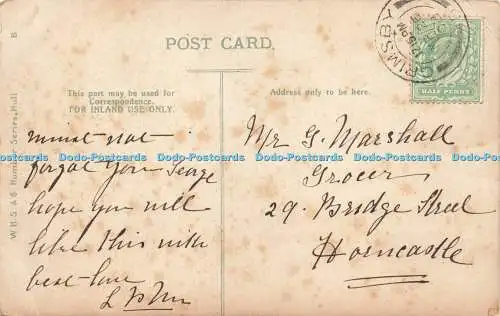 POST CARD.
This part may be used for
Correspondence.
FOR INLAND USE ONLY.
Address only to be here.
GRIMSBY
HALF PENNY
must not
forget you George
hope you will
like this with
best love
Mr G. Marshall
Grocer
29. Bridge Street
Horncastle
Dodo-Postcards Dodo-Postcards Dodo-Postcards Dodo-Postcards
Dodo-Postcards Dodo-Postcards Dodo-Postcards Dodo-Postcards
W.H.S. & S. Humber Series, Hull